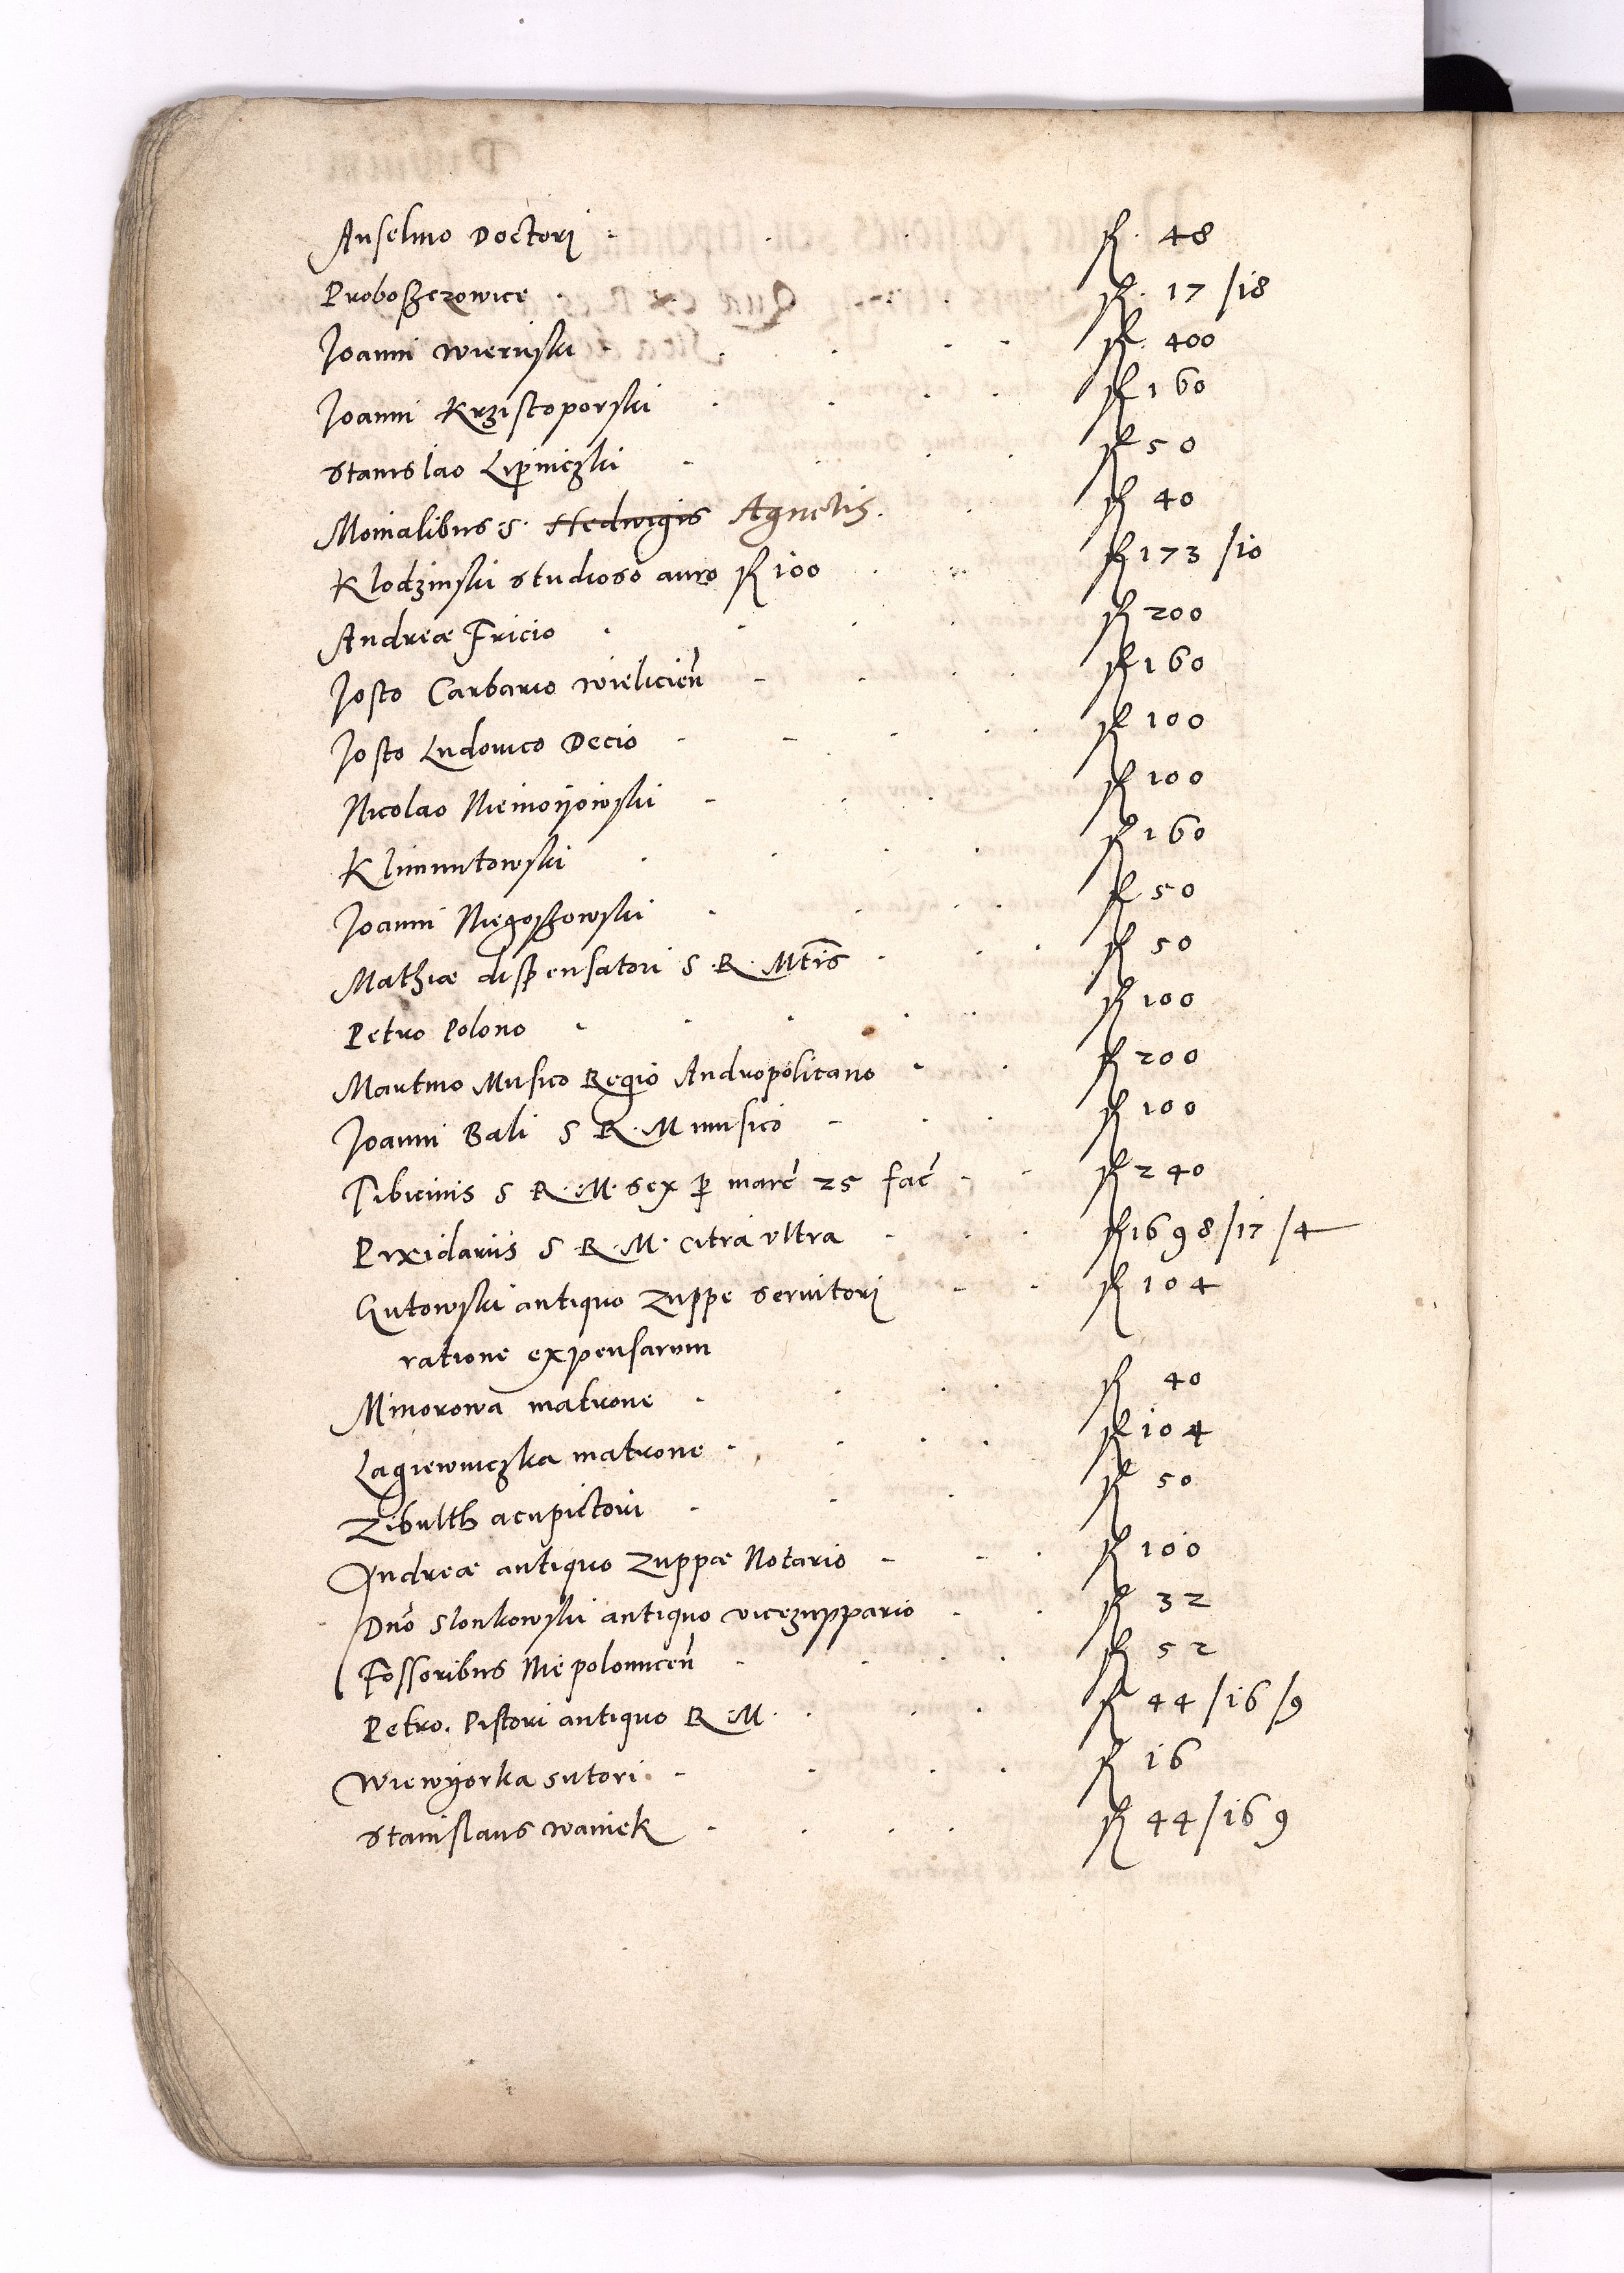 Anselmo Doctori fl. 48
Proboszczowice fl. 17 /18
Joanni Wieruski fl. 400
Joanni Krzistoporski fl 160
Stanislao Lipniczki fl 50
Monialibus S. Hedwigis Agnetis. fl 40
Klodzinski studioso auro fl 100 fl 173 /10
Andreæ Fricio fl 200
Josto Carbario Wielicień fl 160
Josto Ludovico Decio fl 100
Nicolao Niemoyowski fl 100
Klimuntowski fl 160
Joanni Niegoszowski fl 50
Mathiæ dispensatori S. R. Mtis fl 50
Petro Polono fl 100
Martino Musico Regio Andropolitano fl 200
Joanni Bali S R. M musico fl 100
Tibicinis S R. M. sex p marc 25 fac fl 240
Pixidariis S R. M. citra ultra fl 1698 /17 /4
Gutowski antiquo Zuppe servitori fl 104
ratione expensarum
Minorowa matrone fl 40
Lagiewniczka matrone fl 104
Zibulth acupictori fl 50
Andreæ antiquo Zuppæ Notario fl 100
Dno Slonkowski antiquo vicezuppario fl 32
Fossoribus Niepolomicen fl 52
Petro. Pistori antiquo R. M. fl 44 /16 /9
Wiewyorka sutori. fl 16
Stanislaus Waniek fl 44 /16 9